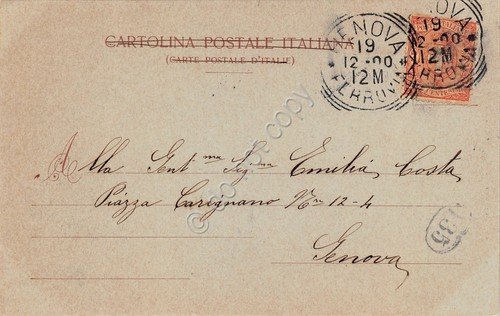 CARTOLINA POSTALE ITALIANA
(CARTE POSTALE D'ITALIE)
GENOVA
19
12-00
12M
* FERROVIA *
GENOVA
19
12-00
12M
FERROVIA
Alla Gent.ma Sig.na Emilia Costa
Piazza Carignano No 12-4
Genova
135